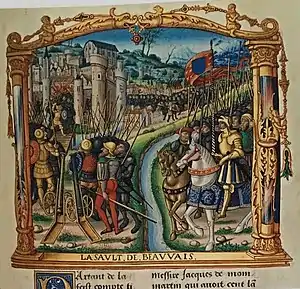 LA SAULT DE BEAUVAIS
Partant de la
fest compte ti
messire Jacques de mom
martin qui avoit cent la